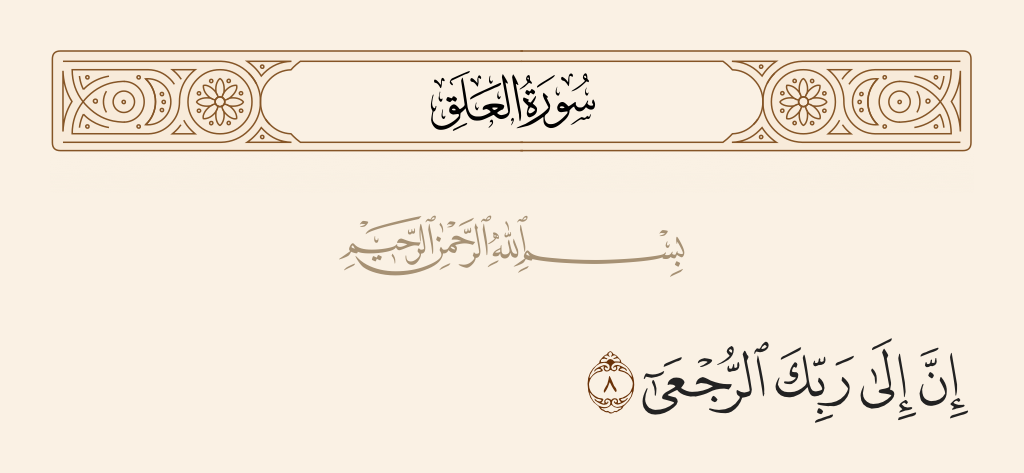 سُورَةُ الْعَلَقِ
بِسْمِ ٱللَّهِ ٱلرَّحْمَٰنِ ٱلرَّحِيمِ
إِنَّ إِلَىٰ رَبِّكَ ٱلرُّجْعَىٰٓ ٨